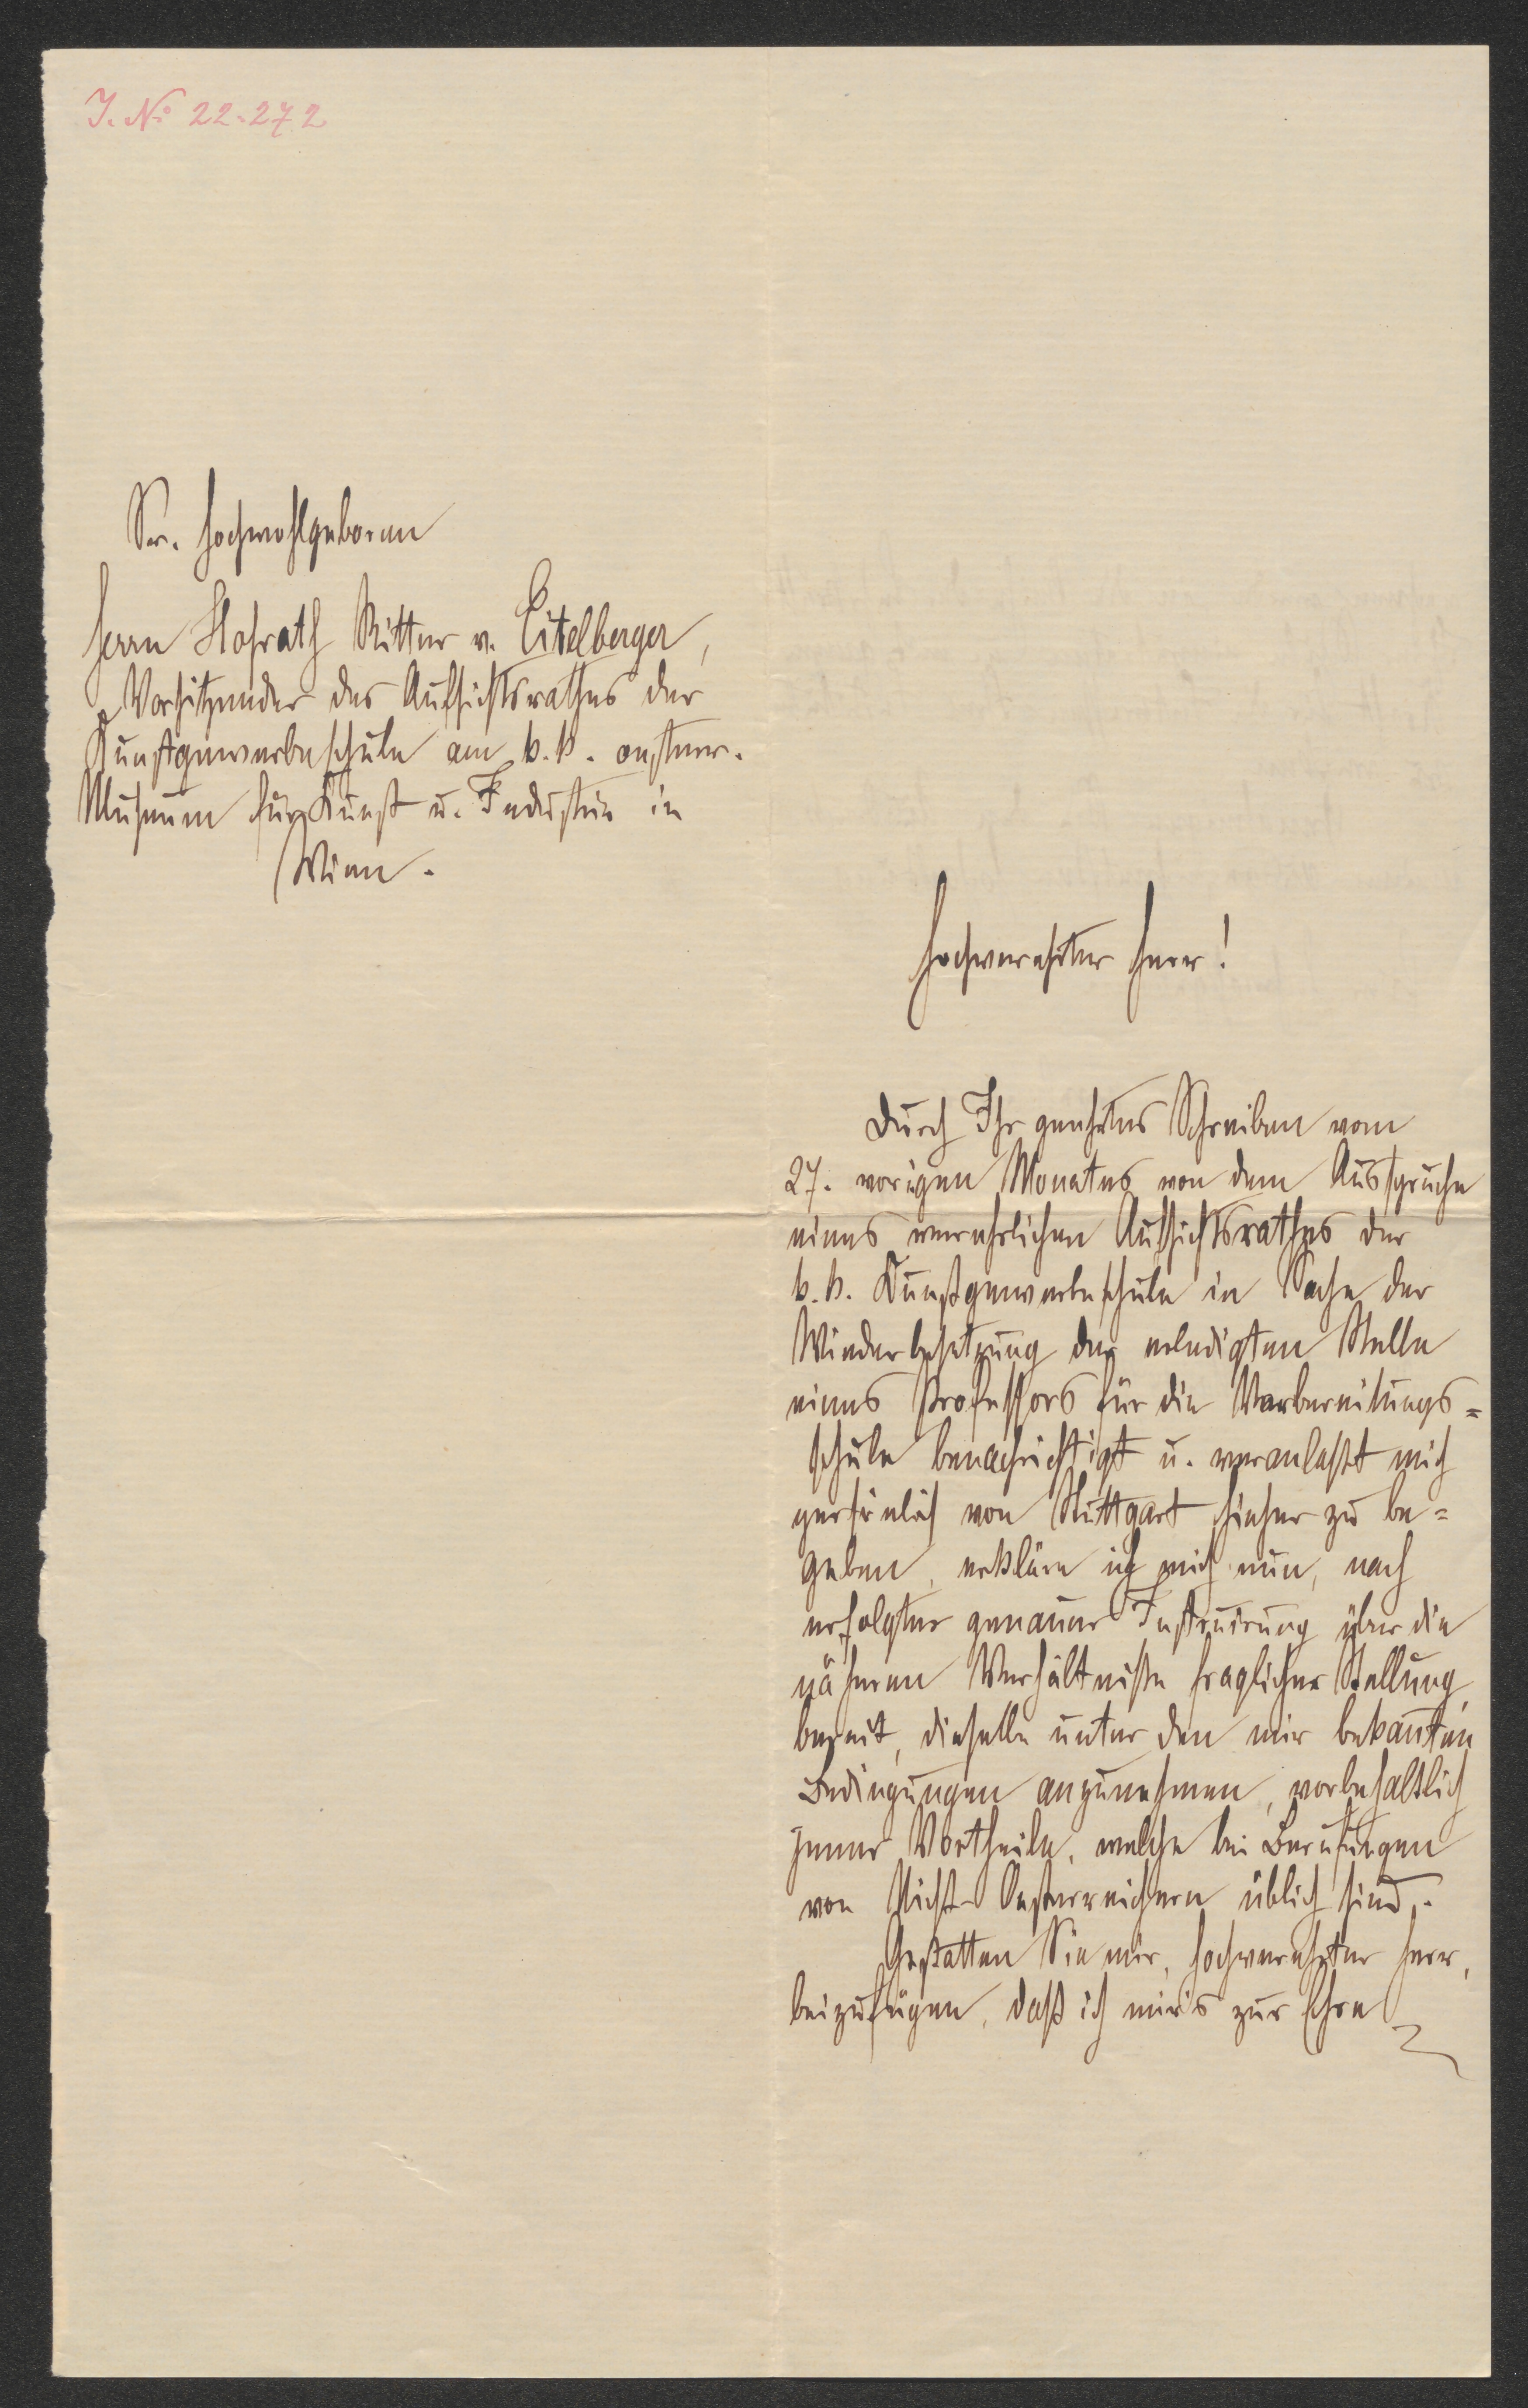 J. No 22.272
Sr. Hochwohlgeboren
Herrn Hofrath Ritter v. Eitelberger,
Vorsitzender des Aufsichtsrathes der
Kunstgewerbeschule am k. k. oesterr.
Museum für Kunst u. Industrie in
Wien.
Hochverehrter Herr!
Durch Ihr geehrtes Schreiben vom
27. vorigen Monates von dem Ausspruche
eines verehrlichen Aufsichtsrathes der
k. k. Kunstgewerbeschule in Sache der
Wiederbesetzung der erledigten Stelle
eines Professors für die Vorbereitungs=
schule benachrichtigt u. veranlaßt mich
persönlich von Stuttgart hieher zu be=
geben, erkläre ich mich nun, nach
erfolgter genauer Instruirung über die
näheren Verhältniße fraglicher Stellung,
bereit, dieselbe unter den mir bekañten
Bedingungen anzunehmen, vorbehaltlich
jener Vortheile, welche bei Berufungen
von Nicht-Oesterreichern üblich sind.
Gestatten Sie mir, hochverehrter Herr,
beizufügen, daß ich mir's zur Ehre